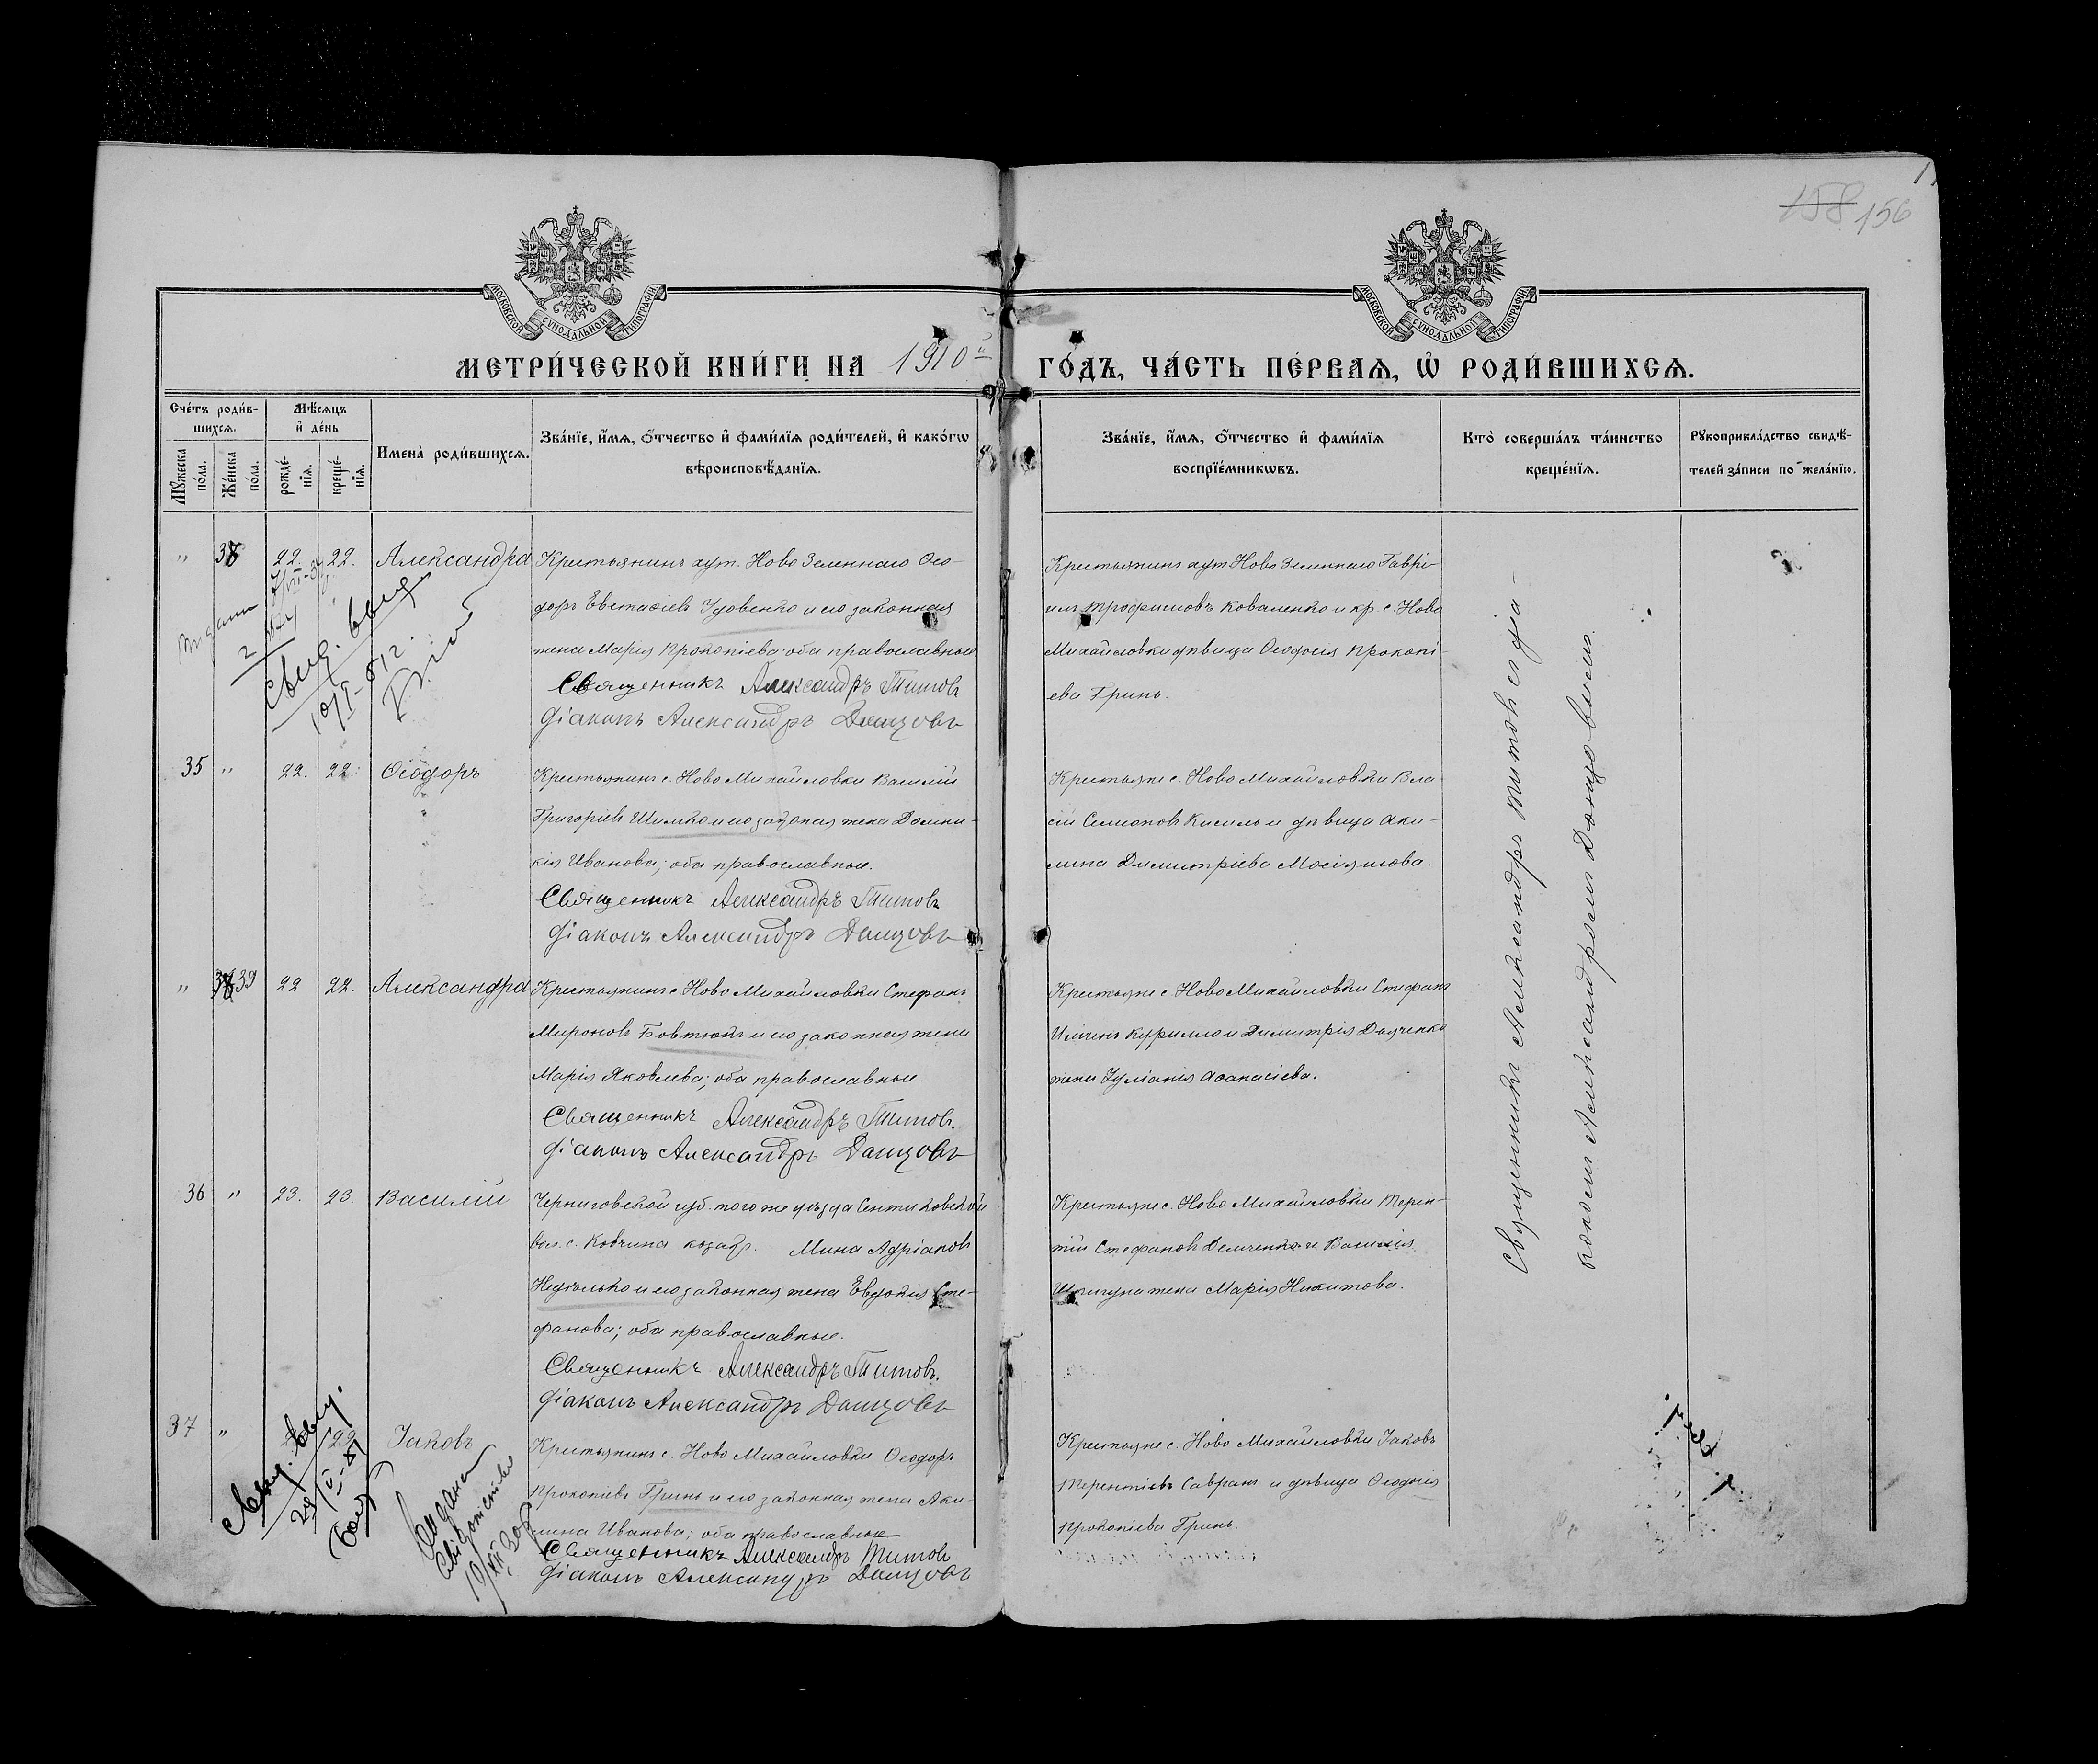 158 156
МОСКОВСКОЙ СѴНОДАЛЬНОЙ ТИПОГРАФІИ
МОСКОВСКОЙ СѴНОДАЛЬНОЙ ТИПОГРАФІИ
МЕТРИ́ЧЕСКОЙ КНИ́ГИ НА 1910 ГО́ДЪ, ЧА́СТЬ ПЕ́РВАѦ, Ѡ҆ РОДИ́ВШИХСѦ.
Сче́тъ роди́в-
шихсѧ.
Мꙋ́жеска по́ла.
Же́нска по́ла.
Мѣ́сѧцъ
и҆ де́нь
рожде́-
нїѧ.
креще́-
нїѧ.
Имена̀ роди́вшихсѧ.
Зва́нїе, и҆́мѧ, ѻ҆́тчество и҆ фами́лїѧ роди́телей, и҆ како́гѡ
вѣроисповѣ́данїѧ.
Зва́нїе, и҆́мѧ, ѻ҆́тчество и҆ фами́лїѧ
воспрїе́мникѡвъ.
Кто̀ соверша́лъ та́инство
креще́нїѧ.
Рꙋкоприкла́дство свидѣ́-
телей за́писи по жела́нїю.
" 38 22. 22. Александра
Крестьянинъ хут. Ново Зеленнаго Ѳео-
доръ Евстаѳіевъ Удовенко и его законная
жена Марія Прокопіева; оба православные
Священникъ Александръ Титовъ
Діаконъ Александръ Донцовъ
Крестьянинъ хут Ново Зеленнаго Гаврі-
илъ Трофимовъ Коваленко и кр. с. Ново
Михайловки дѣвица Ѳеодосія Прокопі-
ева Гринь.
35 " 22. 22. Ѳеодоръ
Крестьянинъ с. Ново Михайловки Василій
Григоріевъ Шилько и его законая жена Домни-
кія Иванова; оба православные.
Священникъ Александръ Титовъ
Діаконъ Александръ Донцовъ
Крестьяне с. Ново Михайловки Вла-
сій Семеновъ Кисиль и дѣвица Аки-
лина Димитріева
" 39 22 22. Александра
Крестьянинъ с Ново Михайловки Стефанъ
Мироновъ Бовтюкъ и его законная жена
Марія Яковлева; оба православные.
Священникъ Александръ Титовъ.
Діаконъ Александръ Донцовъ
Крестьяне с. Ново Михайловки Стефанъ
Ильинъ Куррило и Димитрія Дяченко
жена Іуліанія Аѳанасіева.
36 " 23. 23. Василій
Черниговской губ. того же уѣзда
вол. с. Ковчина козакъ Мина Адріановъ
Недѣлько и его законная жена Евдокія Сте-
фанова; оба православные.
Священникъ Александръ Титовъ.
Діаконъ Александръ Донцовъ
Крестьяне с. Ново Михайловки Терен-
тій Стефановъ Демченко и Василія
жена Марія Никитова.
37 " Іаковъ
Крестьянинъ с. Ново Михайловки Ѳеодоръ
Прокопіевъ Гринь и его законная жена Аки-
лина Иванова; оба православные
Священникъ Александръ Титовъ
Діаконъ Александръ Донцовъ
Крестьяне с. Ново Михайловки Іаковъ
Терентіевъ Савранъ и дѣвица Ѳеодосія
Прокопіева Гринь.
Священникъ Александръ Титовъ съ діа-
кономъ Александромъ Донцовымъ.